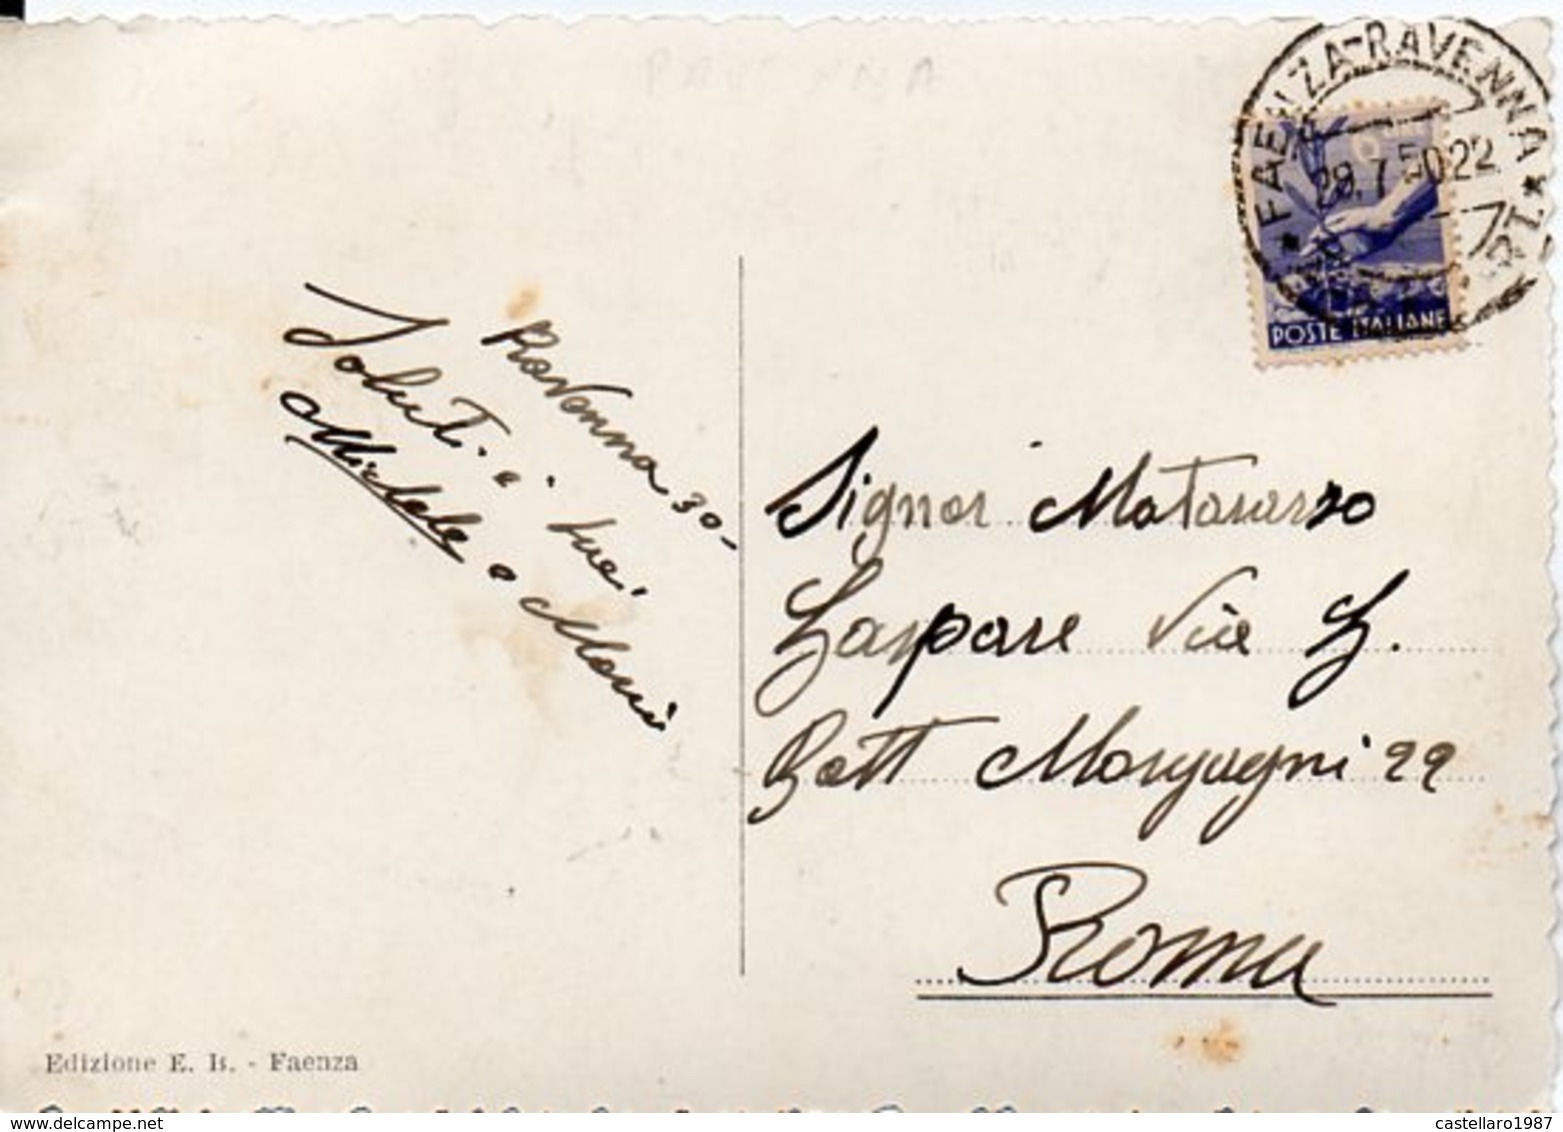 RAVENNA
FAENZA-RAVENNA
29.7.50 22
POSTE ITALIANE
Ravenna 30-
Saluti e
tuoi
Michele e Maria
Signor Matarazzo
Gaspare Via G.
Batt Morgagni 22
Roma
Edizione E. B. - Faenza
delcampe.net
castellaro1987